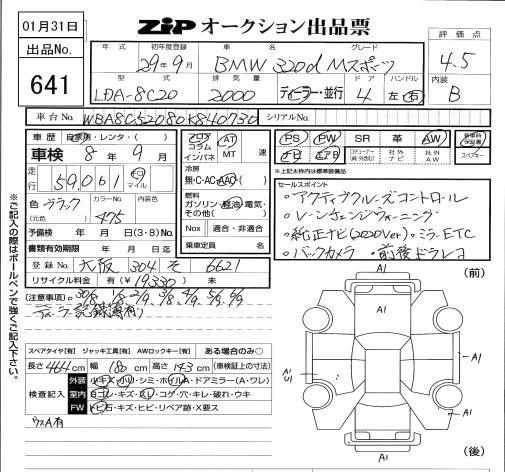 01月31日
出品No.
641
ZIP オークション出品票
評価点
4.5
内装
B
年式 初年度登録 車名 グレード
29年9月 BMW 320d Mスポーツ
型式 排気量 ドア ハンドル
LDA-8C20 2000 ディーラー・並行 4 左・右
車台No. WBA8C52080K840730 シリアルNo.
車歴 自家用・レンタ・( )
車検 8年9月
走行 59,061 km マイル
色 ブラック カラーNo. 475 内装色
(元色)
予備検 年 月 日(3・8)No.
書類有効期限 年 月 日迄
登録No. 大阪 304 そ 6621
リサイクル料金 有(¥19330) 未
フロア コラム インパネ
AT MT 速
冷房
無・C・AC・AAC
燃料
ガソリン・軽油・電気・その他( )
Nox 適合・非適合
乗車定員 名
PS PW SR 革 AW
ナビ
社外AW
新車時保証書
スペアキー
※上記太枠内は標準装備品
セールスポイント
・アクティブクルーズコントロール
・レーンチェンジウォーニング
・純正ナビ(2020Ver)・ミラーETC
・バックカメラ・前後ドラレコ
※ご記入の際はボールペンで強くご記入下さい。
(注意事項)
ディーラー記録簿有り
スペアタイヤ[有] ジャッキ工具[有] AWロックキー[有] ある場合のみ○
長さ 464cm 幅 180cm 高さ 143cm (車検証上の寸法)
検査記入
外装 小キズ・小U・シミ・ホイルA・ドアミラー(A・ワレ)
室内 ヨゴレ・キズ・スレ・コゲ・穴・キレ・破れ・ウキ
FW トビ石・キズ・ヒビ・リペア跡・X要ス
(前)
A1
A1
A1
U1
A1
A1
A1
A1
(後)